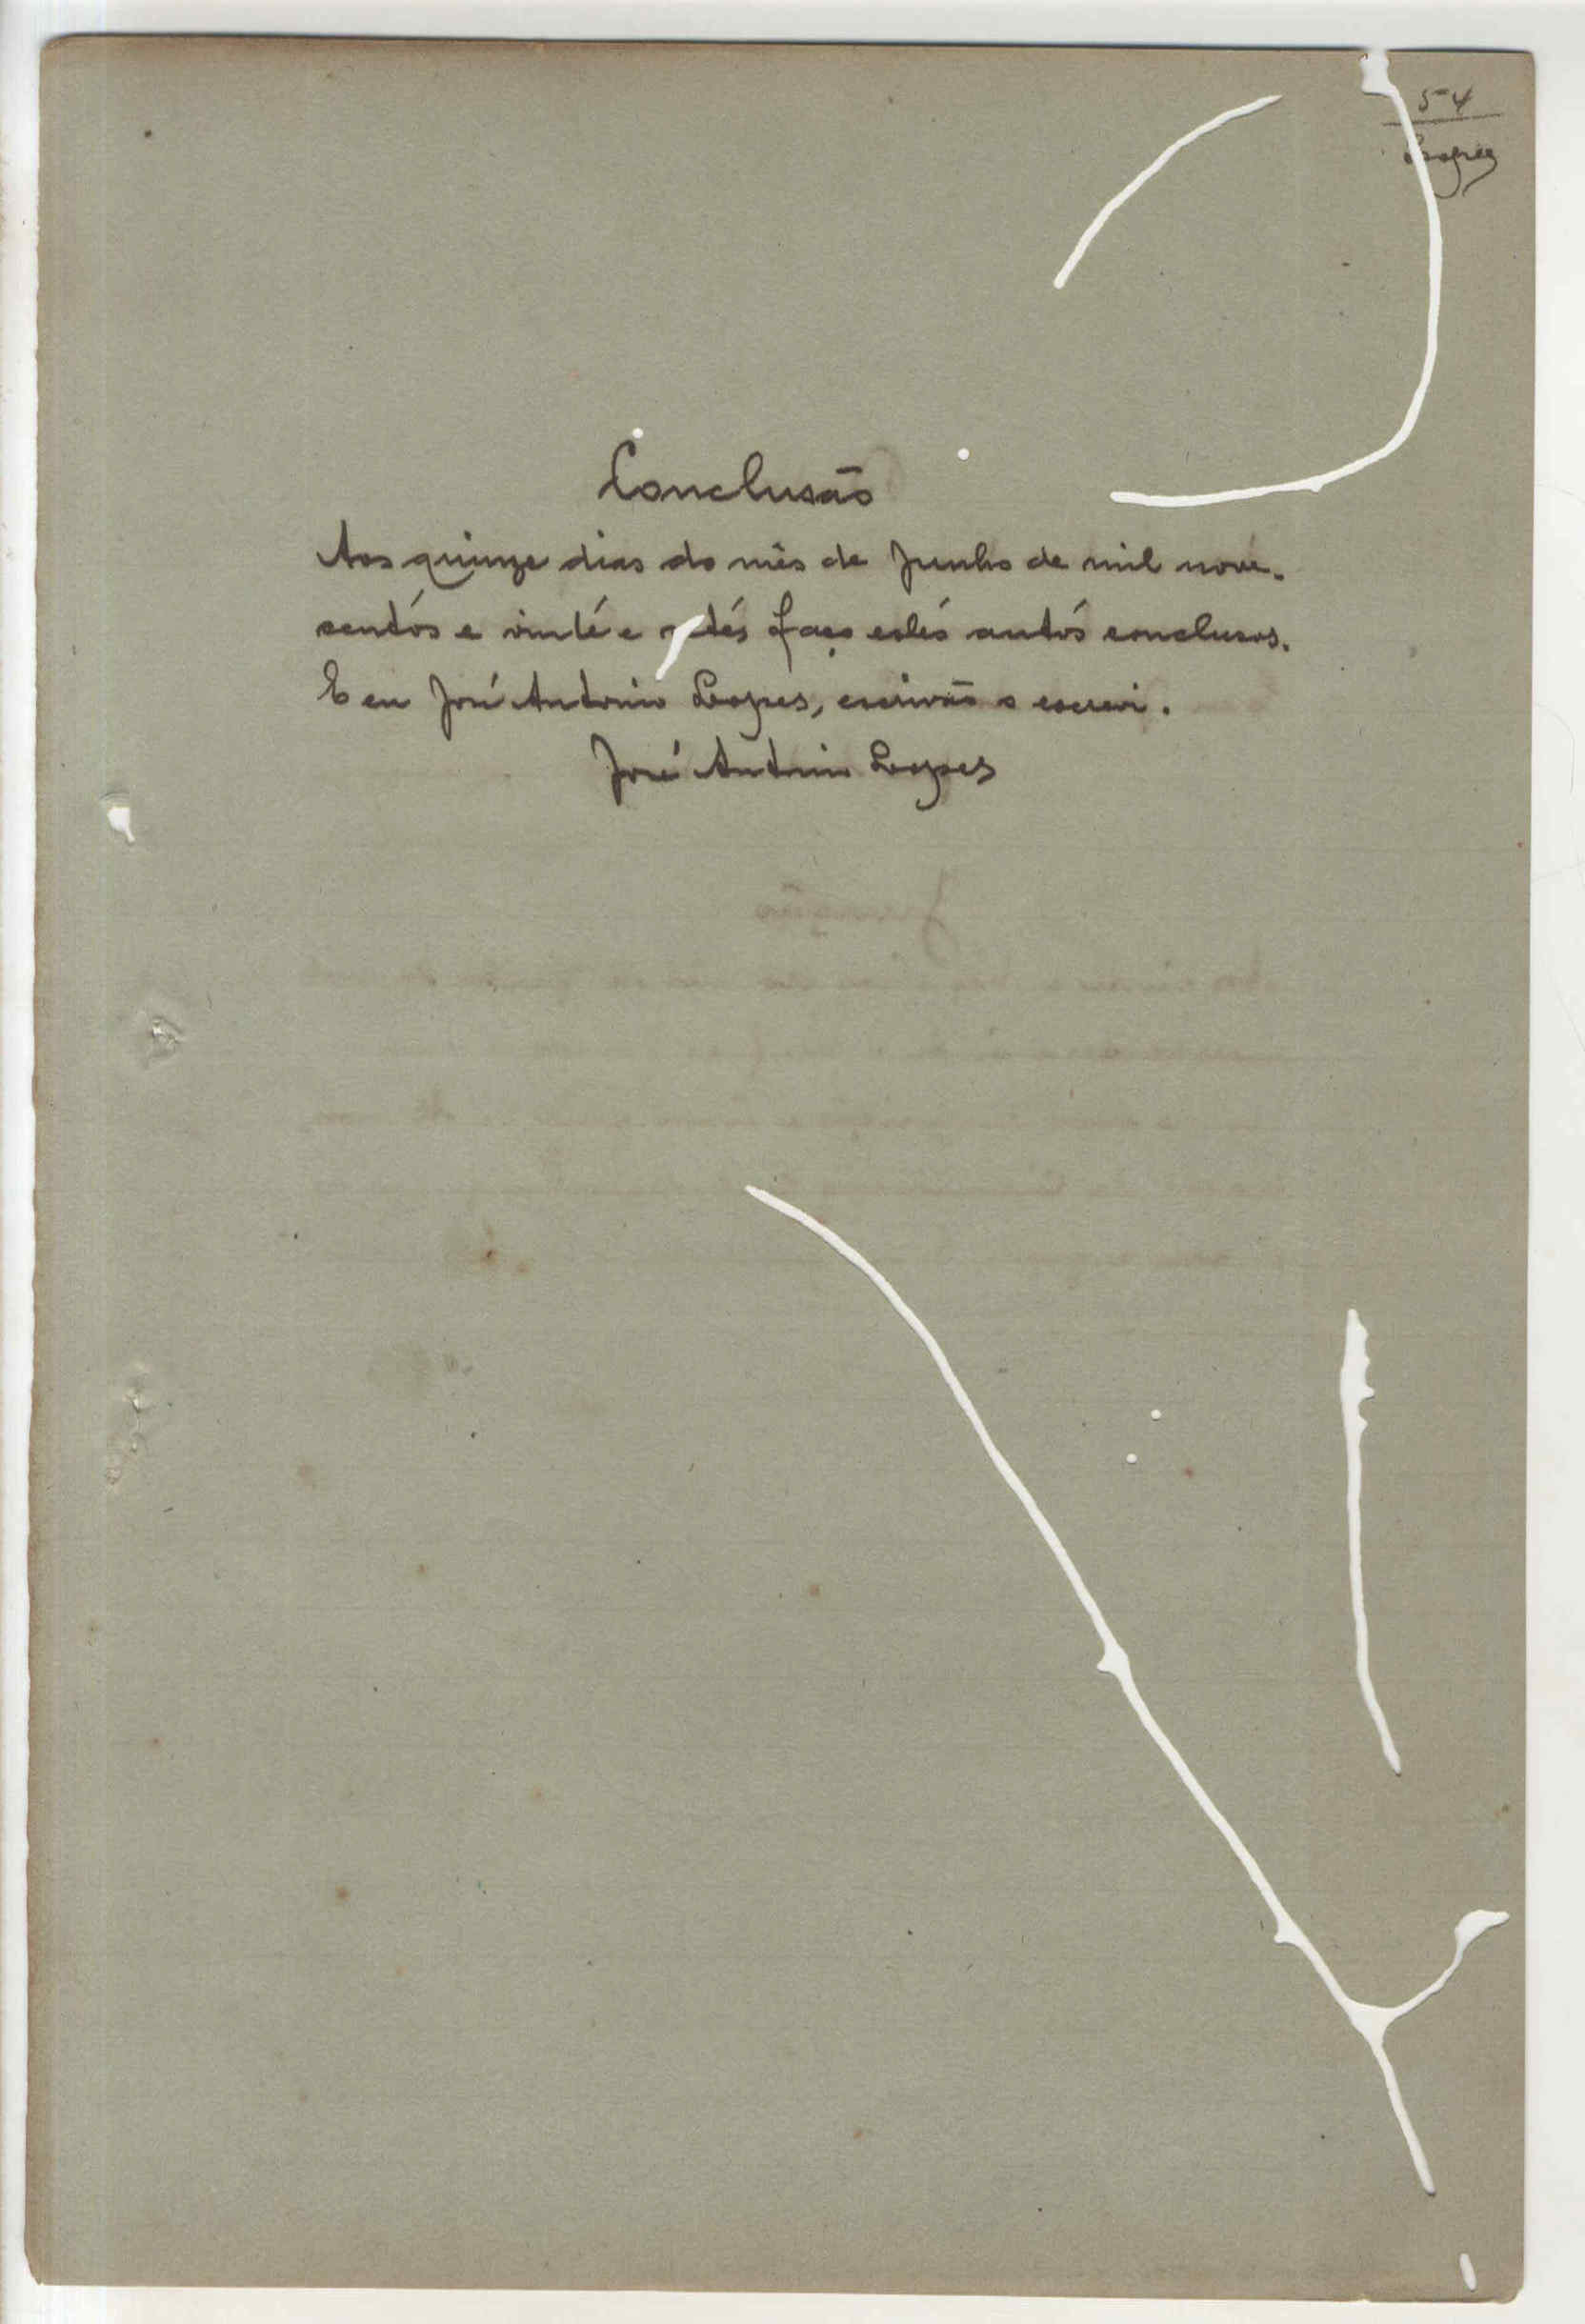 54
Lopes
Conclusão
Aos quinze dias do mês de Junho de mil nove-
sentos e vinte e faço estes autos conclusos.
E eu José Antonio Lopes, escrivão o escrevi.
José Antonio Lopes